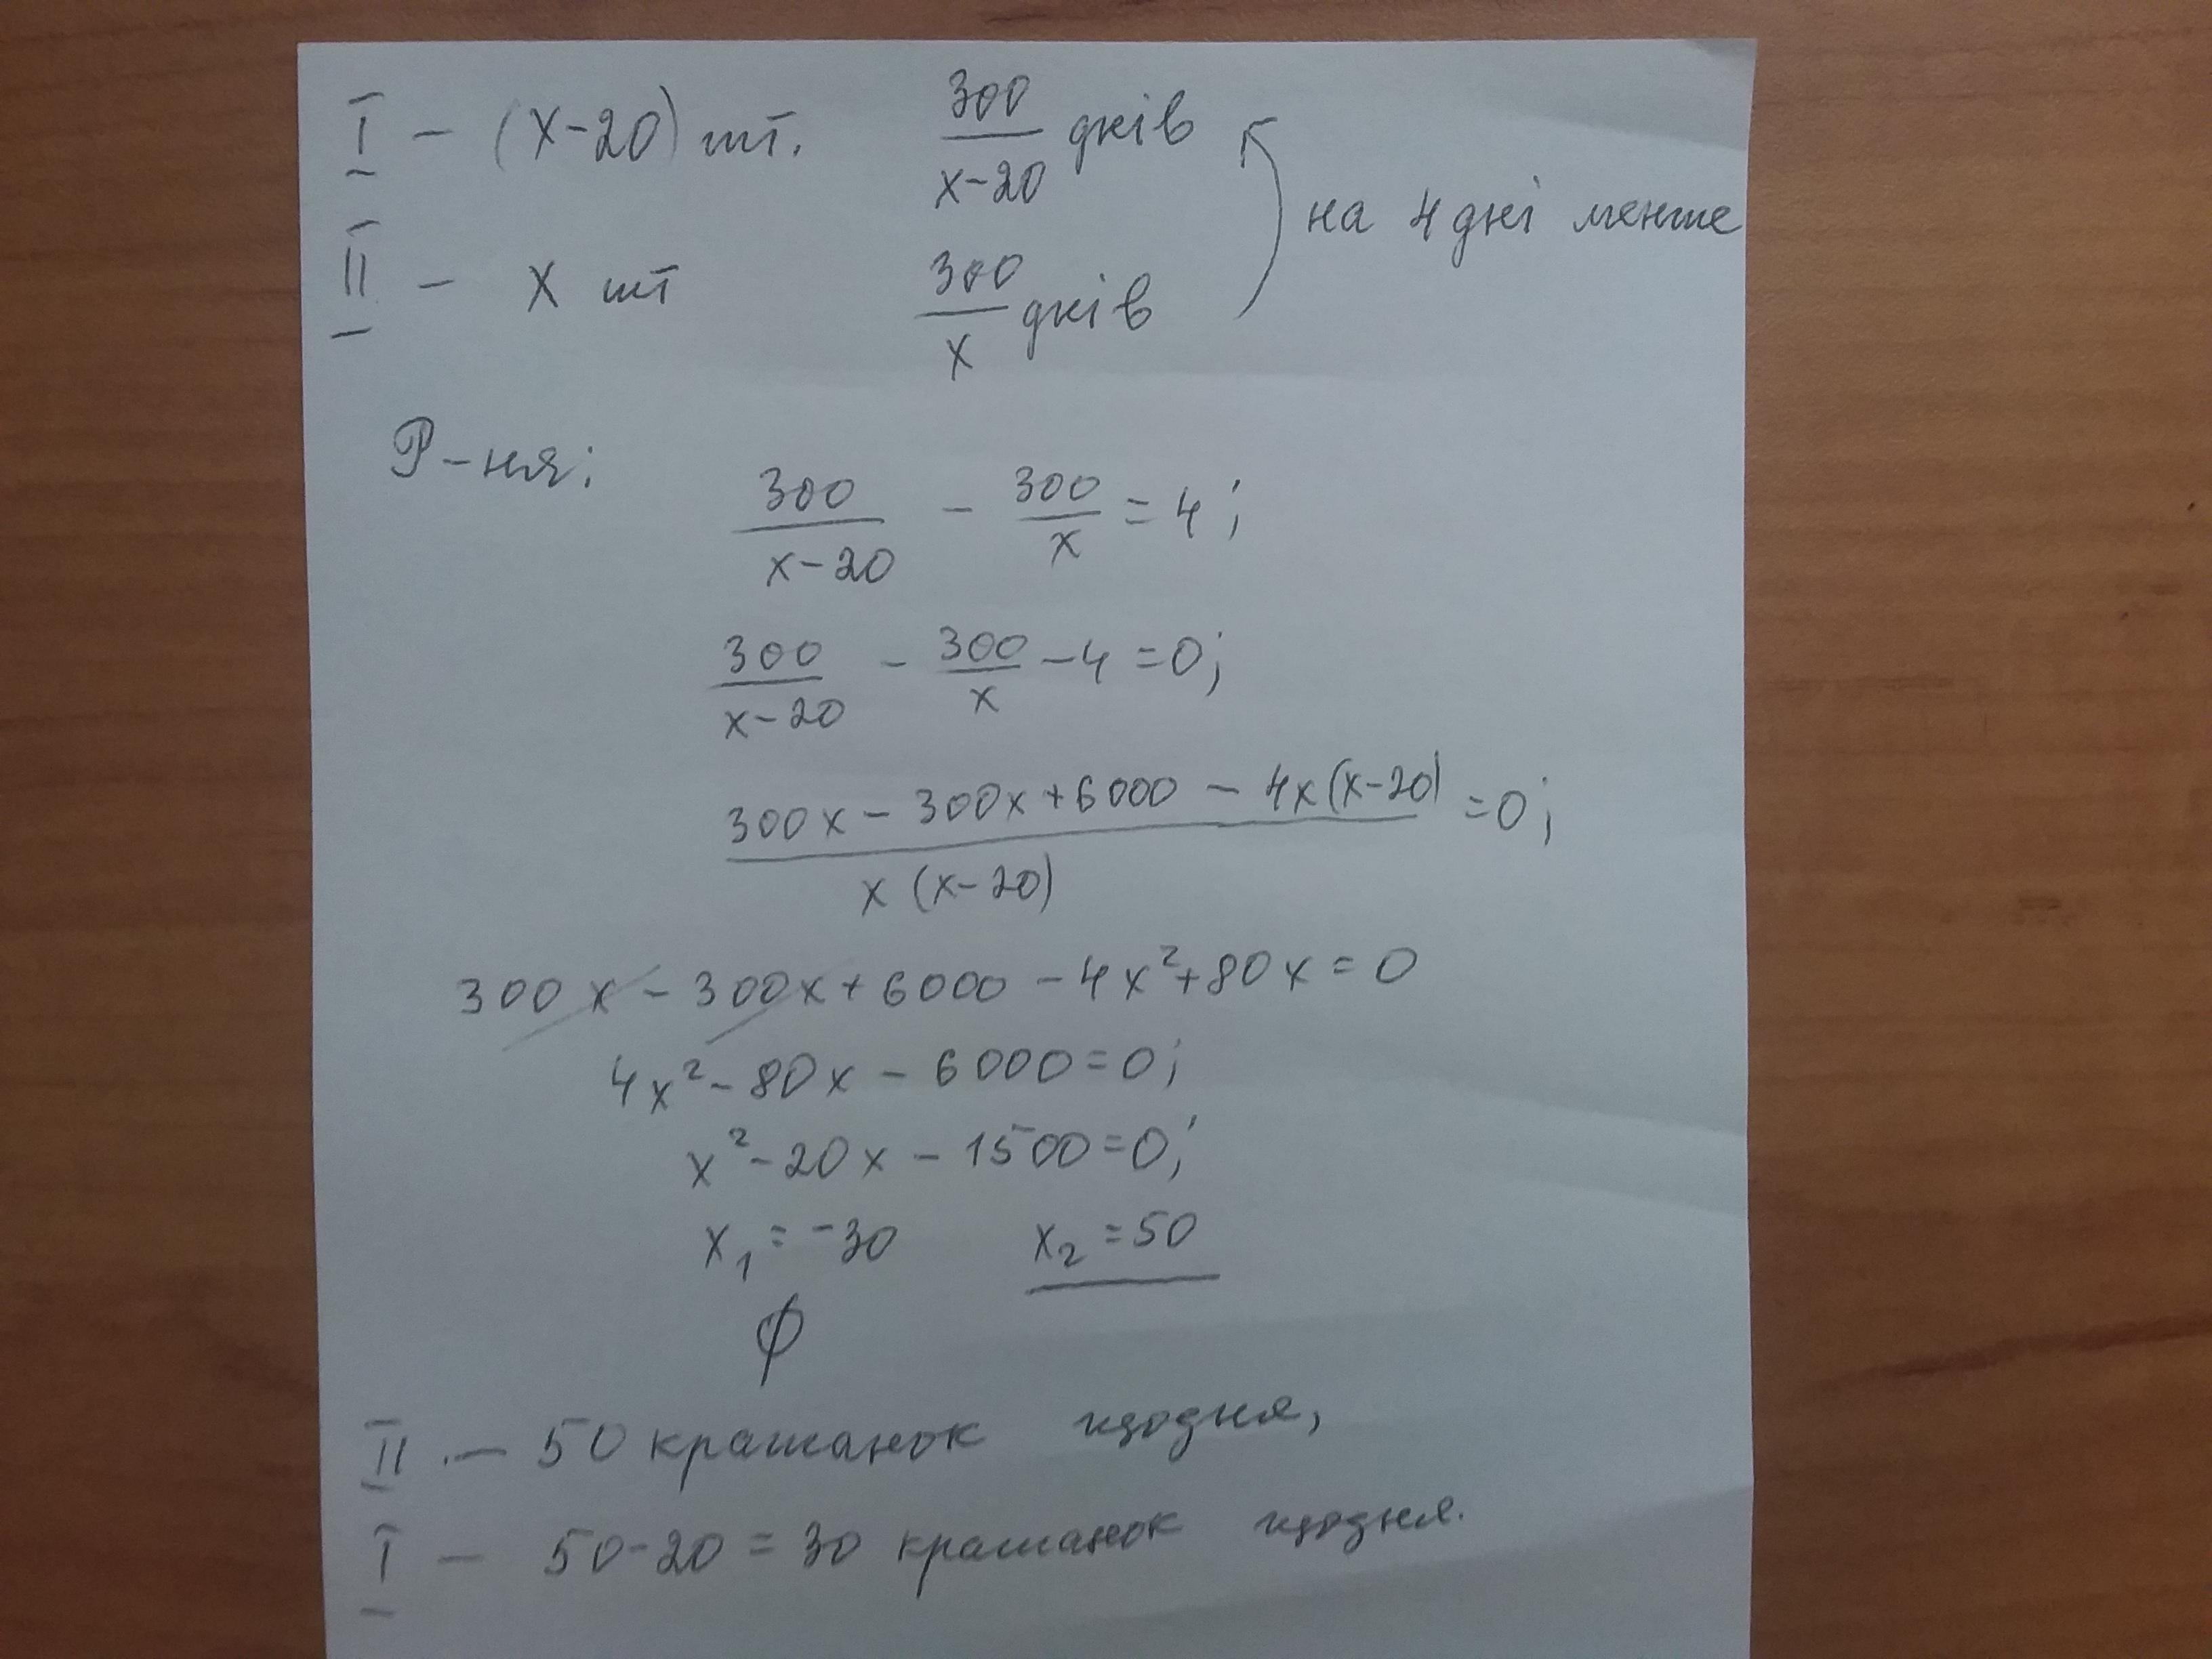 I – (x-20) шт. 300/(x-20) днів
на 4 дні менше
II – x шт 300/x днів
Р-ня:
300/(x-20) - 300/x = 4;
300/(x-20) - 300/x - 4 = 0;
(300x - 300x + 6000 - 4x(x-20))/(x(x-20)) = 0;
300x - 300x + 6000 - 4x² + 80x = 0
4x² - 80x - 6000 = 0;
x² - 20x - 1500 = 0;
x₁ = -30 x₂ = 50
∅
II – 50 крашанок щодня,
I – 50-20 = 30 крашанок щодня.